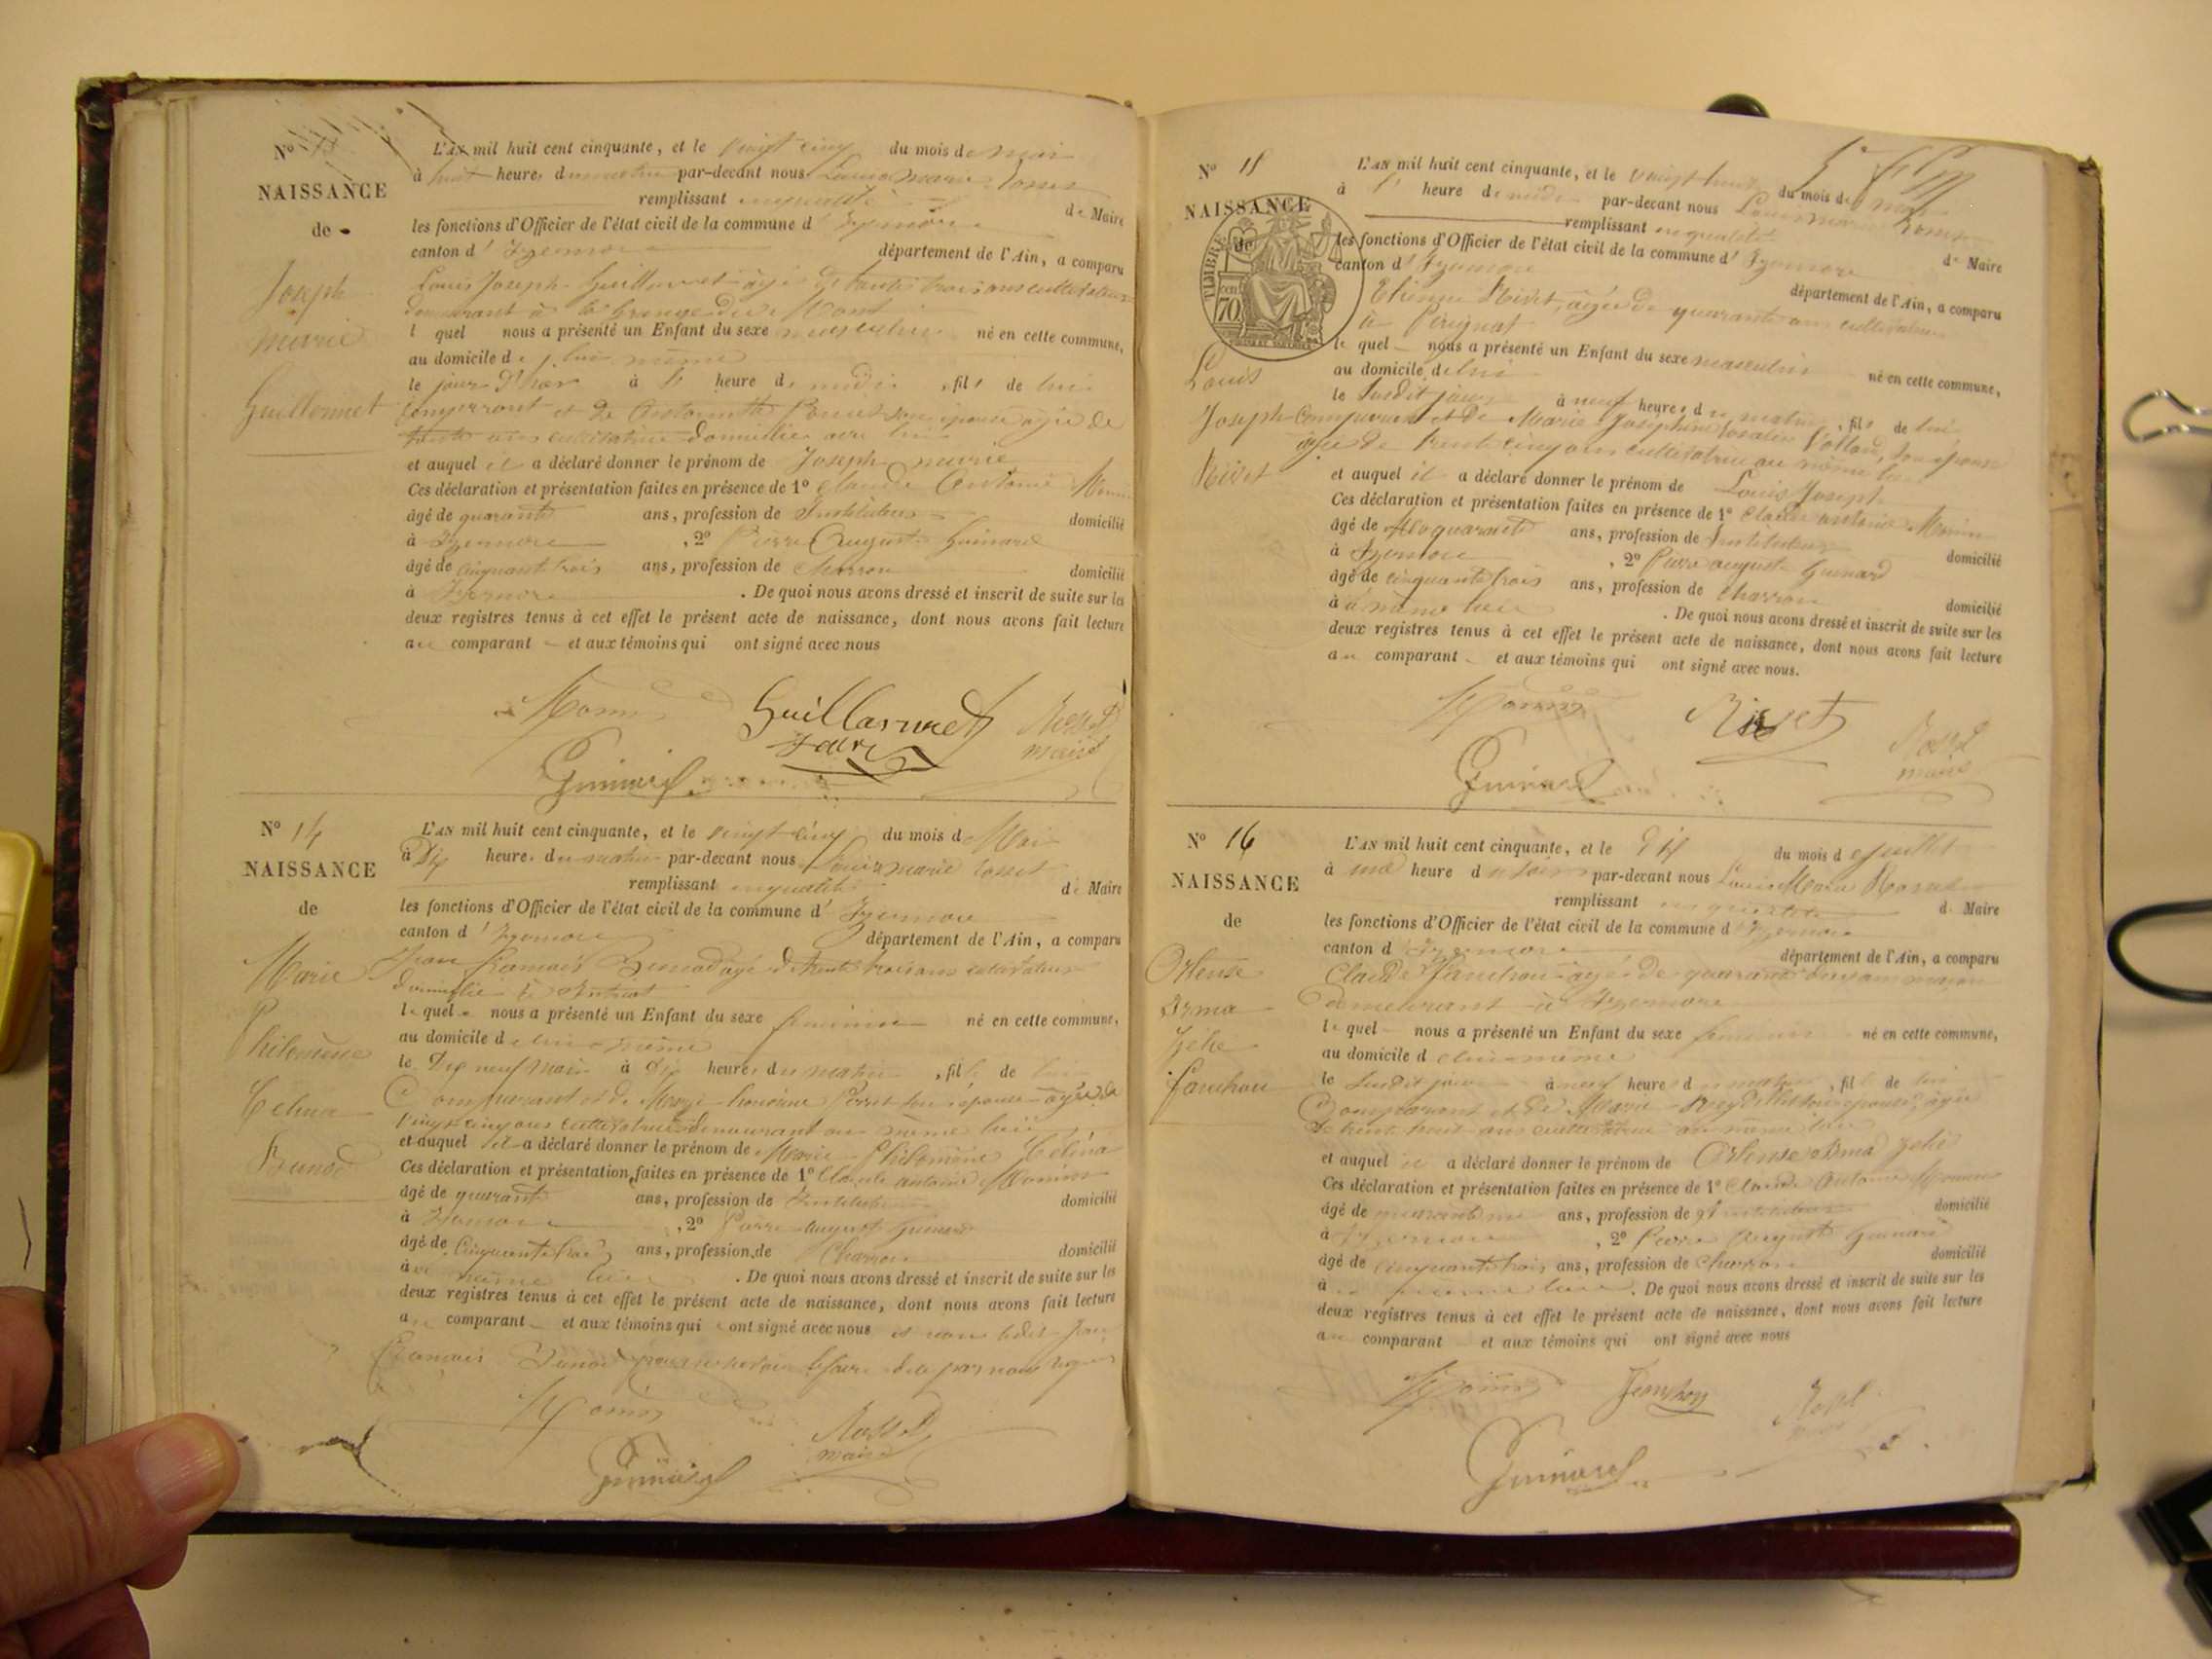 Nº 13
NAISSANCE
de
Joseph
marie
Guillermet
L'AN mil huit cent cinquante, et le vingt cinq du mois de mai
à huit heures du matin par-devant nous Louis marie Rosset
remplissant en qualité de Maire
les fonctions d'Officier de l'état civil de la commune d'Izernore
canton d'Izernore département de l'Ain, a comparu
Louis Joseph Guillermet âgé de trente trois ans cultivateur
demeurant à la grange du Mont
lequel nous a présenté un Enfant du sexe masculin né en cette commune,
au domicile de lui même
le jour d'hier à heure de midi, fils de lui
comparant et de Antoinette son épouse âgée de
ans cultivatrice domiciliée avec lui
et auquel il a déclaré donner le prénom de Joseph marie
Ces déclaration et présentation faites en présence de 1º Claude Antoine Monin
âgé de quarante ans, profession de Instituteur domicilié
à Izernore, 2º Pierre Auguste Guinard
âgé de cinquante trois ans, profession de Charron domicilié
à Izernore. De quoi nous avons dressé et inscrit de suite sur les
deux registres tenus à cet effet le présent acte de naissance, dont nous avons fait lecture
au comparant et aux témoins qui ont signé avec nous
Monin Guillermet Rosset
maire
Guinard
Nº 14
NAISSANCE
de
Marie
Philomène
Celina
Bunod
L'AN mil huit cent cinquante, et le vingt cinq du mois de Mai
à Dix heures du matin par-devant nous Louis marie Rosset
remplissant en qualité de Maire
les fonctions d'Officier de l'état civil de la commune d'Izernore
canton d'Izernore département de l'Ain, a comparu
Jean François Bunod âgé de trente trois ans cultivateur
domicilié à
lequel nous a présenté un Enfant du sexe feminin né en cette commune,
au domicile de lui même
le Dix neuf Mai à Dix heures du matin, fille de lui
Comparant et de Perret son épouse âgée de
vingt cinq ans cultivatrice demeurant au même lieu
et auquel il a déclaré donner le prénom de Marie Philomène Celina
Ces déclaration et présentation faites en présence de 1º Claude antoine Monin
âgé de quarante ans, profession de Instituteur domicilié
à Izernore, 2º Pierre August Guinard
âgé de Cinquante trois ans, profession de Charron domicilié
à u même lieu. De quoi nous avons dressé et inscrit de suite sur les
deux registres tenus à cet effet le présent acte de naissance, dont nous avons fait lecture
au comparant et aux témoins qui ont signé avec nous et non ledit Jean
François Bunod pour ne savoir le faire de ce par nous requis
Monin Rosset
maire
Guinard
Nº 15
NAISSANCE
de
TIMBRE
70
Louis
Joseph
Rivet
L'AN mil huit cent cinquante, et le vingt huit du mois de mai
à heure de midi par-devant nous Louis marie Rosset
remplissant en qualité de Maire
les fonctions d'Officier de l'état civil de la commune d'Izernore
canton d'Izernore département de l'Ain, a comparu
Etienne Rivet, âgé de quarante ans cultivateur
à Perignat
lequel nous a présenté un Enfant du sexe masculin né en cette commune,
au domicile de lui
le susdit jour à neuf heures du matin, fils de lui
Comparant et de Marie Josephine Rosalie son épouse
âgée de trente cinq ans cultivatrice au même lieu
et auquel il a déclaré donner le prénom de Louis Joseph
Ces déclaration et présentation faites en présence de 1º Claude antoine Monin
âgé de quarante ans, profession de Instituteur domicilié
à Izernore, 2º Pierre auguste Guinard
âgé de cinquante trois ans, profession de Charron domicilié
à u même lieu. De quoi nous avons dressé et inscrit de suite sur les
deux registres tenus à cet effet le présent acte de naissance, dont nous avons fait lecture
au comparant et aux témoins qui ont signé avec nous.
Monin Rivet Rosset
maire
Guinard
Nº 16
NAISSANCE
de
Orlense
Irma
Zelie
Janchon
L'AN mil huit cent cinquante, et le Dix du mois de Juillet
à une heure du soir par-devant nous Louis Marie Rosset
remplissant en qualité de Maire
les fonctions d'Officier de l'état civil de la commune d'Izernore
canton d'Izernore département de l'Ain, a comparu
Claude Janchon âgé de quarante ans
demeurant à Izernore
lequel nous a présenté un Enfant du sexe feminin né en cette commune,
au domicile de lui même
le susdit jour à neuf heures du matin, fille de lui
Comparant et de Marie son épouse, âgée
de trente huit ans cultivatrice au même lieu
et auquel il a déclaré donner le prénom de Orlense Irma Zelie
Ces déclaration et présentation faites en présence de 1º Claude Antoine Monin
âgé de quarante ans, profession de Instituteur domicilié
à Izernore, 2º Pierre August Guinard
âgé de cinquante trois ans, profession de Charron domicilié
à u même lieu. De quoi nous avons dressé et inscrit de suite sur les
deux registres tenus à cet effet le présent acte de naissance, dont nous avons fait lecture
au comparant et aux témoins qui ont signé avec nous
Monin Janchon Rosset
Guinard